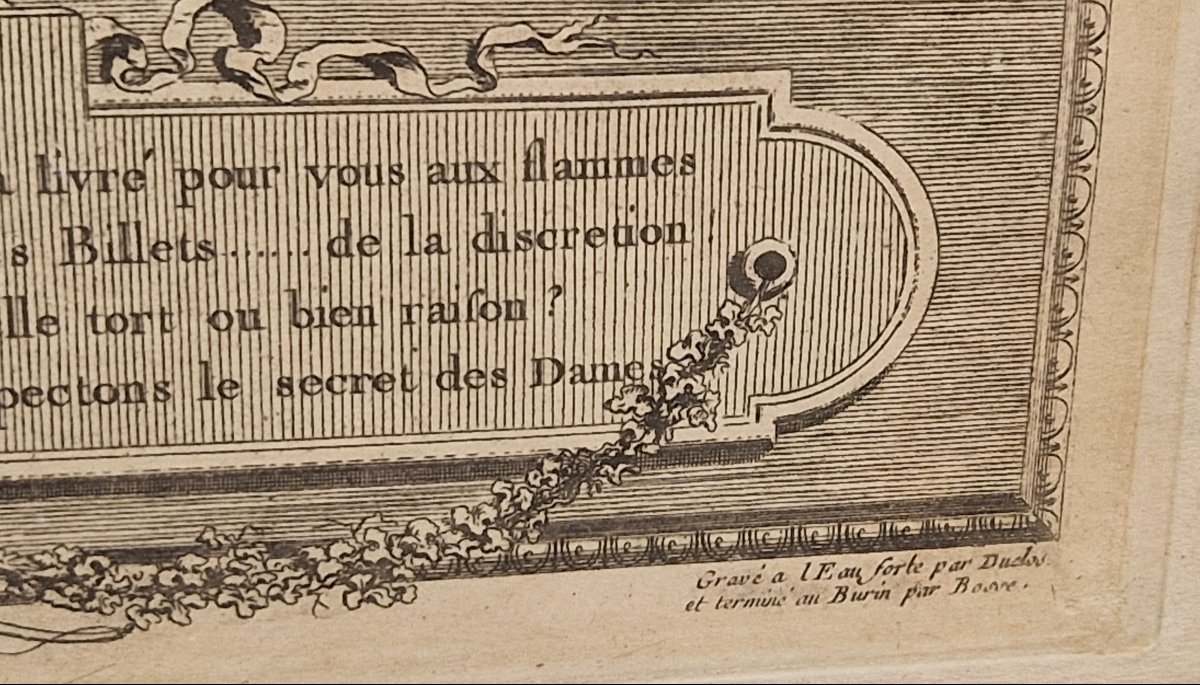 livré pour vous aux flammes
s Billets....... de la discretion
lle tort ou bien raiſon ?
pectons le secret des Dames
Gravé a l'Eau forte par Duclos.
et terminé au Burin par Bosse.